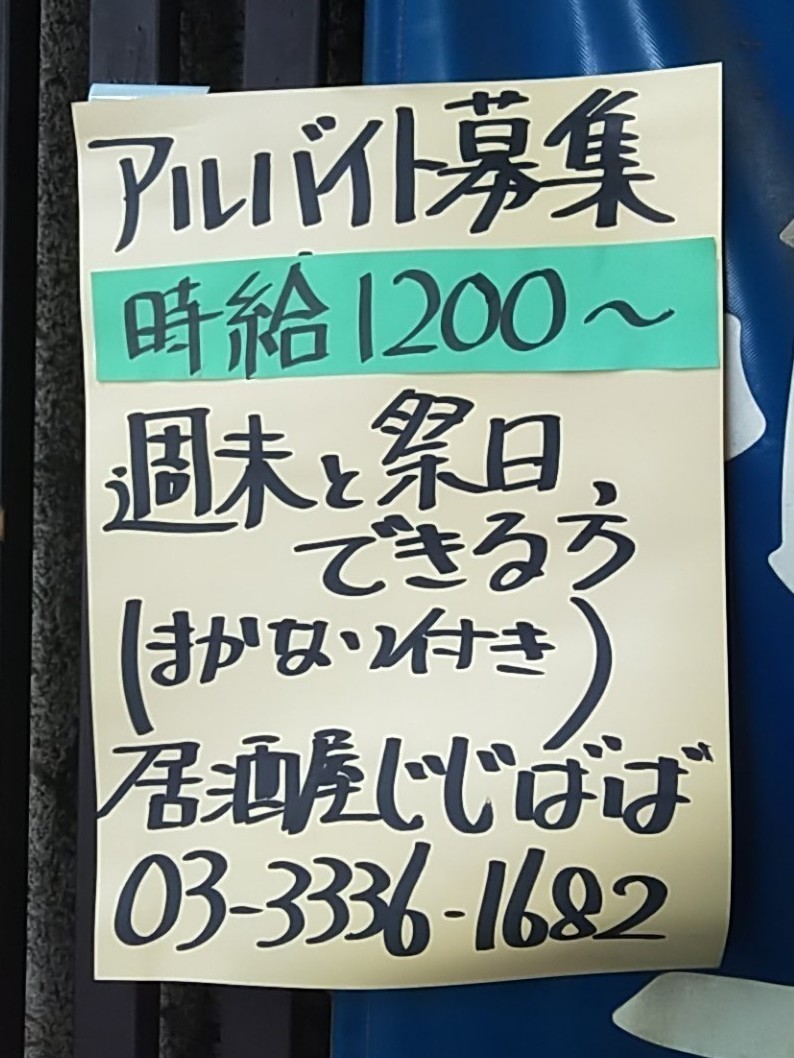 アルバイト募集
時給1200〜
週末と祭日、
できる方
(まかない付き)
居酒屋じじばば
03-3336-1682